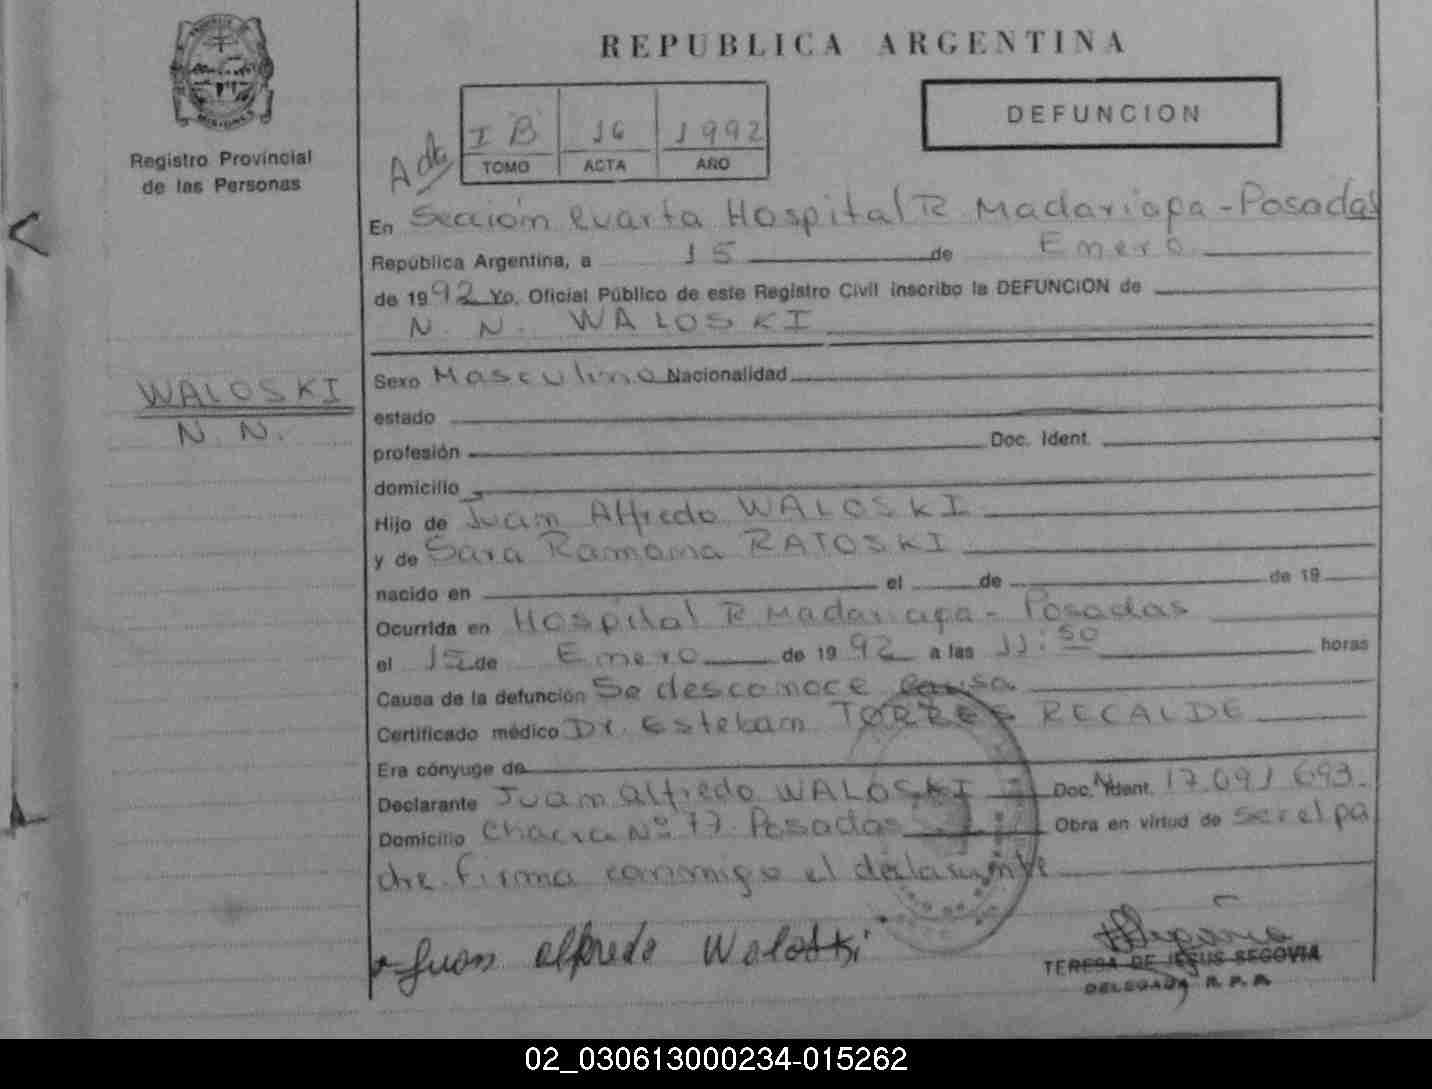 REPUBLICA ARGENTINA
DEFUNCION
I B 16 1992
TOMO ACTA AÑO
Registro Provincial
de las Personas
En Sección Cuarta Hospital R. Madariaga - Posadas
República Argentina, a 15 de Enero
de 1992 Yo, Oficial Público de este Registro Civil inscribo la DEFUNCION de
N. N. WALOSKI
WALOSKI
N. N.
Sexo Masculino Nacionalidad
estado
profesión Doc. Ident.
domicilio
Hijo de Juan Alfredo WALOSKI
y de Sara Ramona RATOSKI
nacido en el de de 19
Ocurrida en Hospital R. Madariaga - Posadas
el 15 de Enero de 1992 a las 11:50 horas
Causa de la defunción Se desconoce causa
Certificado médico Dr. Esteban TORRES RECALDE
Era cónyuge de
Declarante Juan Alfredo WALOSKI Doc. Ident. 17.091.693.
Domicilio Chacra Nº 77. Posadas Obra en virtud de ser el pa
dre. firma conmigo el declarante
Juan Alfredo Waloski
TERESA DE JESUS SEGOVIA
DELEGADA R. P. P.
02_030613000234-015262